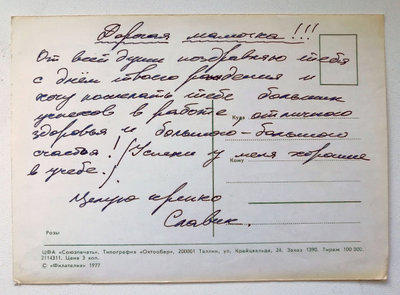 Дорогая мамочка!!!
От всей души поздравляю тебя
с днём твоего рождения и
хочу пожелать тебе больших
успехов в работе, отличного
здоровья и большого-большого
счастья! (Успехи у меня хорошие
в учебе.)
Целую крепко
Славик.
Куда
Кому
Розы
ЦФА «Союзпечать». Типография «Октообер», 200001 Таллин, ул. Крейцвальди, 24. Заказ 1390. Тираж 100 000.
2114311. Цена 3 коп.
© «Филателия» 1977